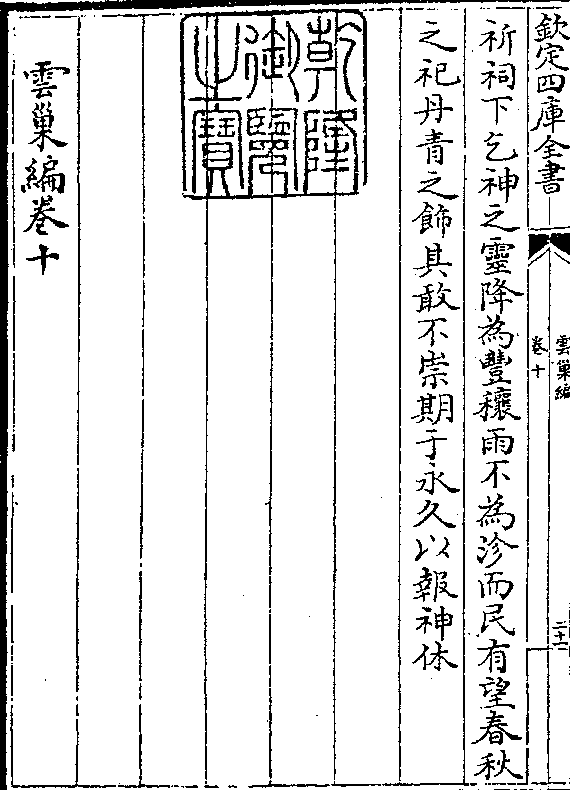 欽定四庫全書
雲巢編
卷十
二十一
祈祠下乞神之靈降為豐穰雨不為沴而民有望春秋
之祀丹青之飾其敢不崇期于永久以報神休
乾隆御覽之寶
雲巢編卷十